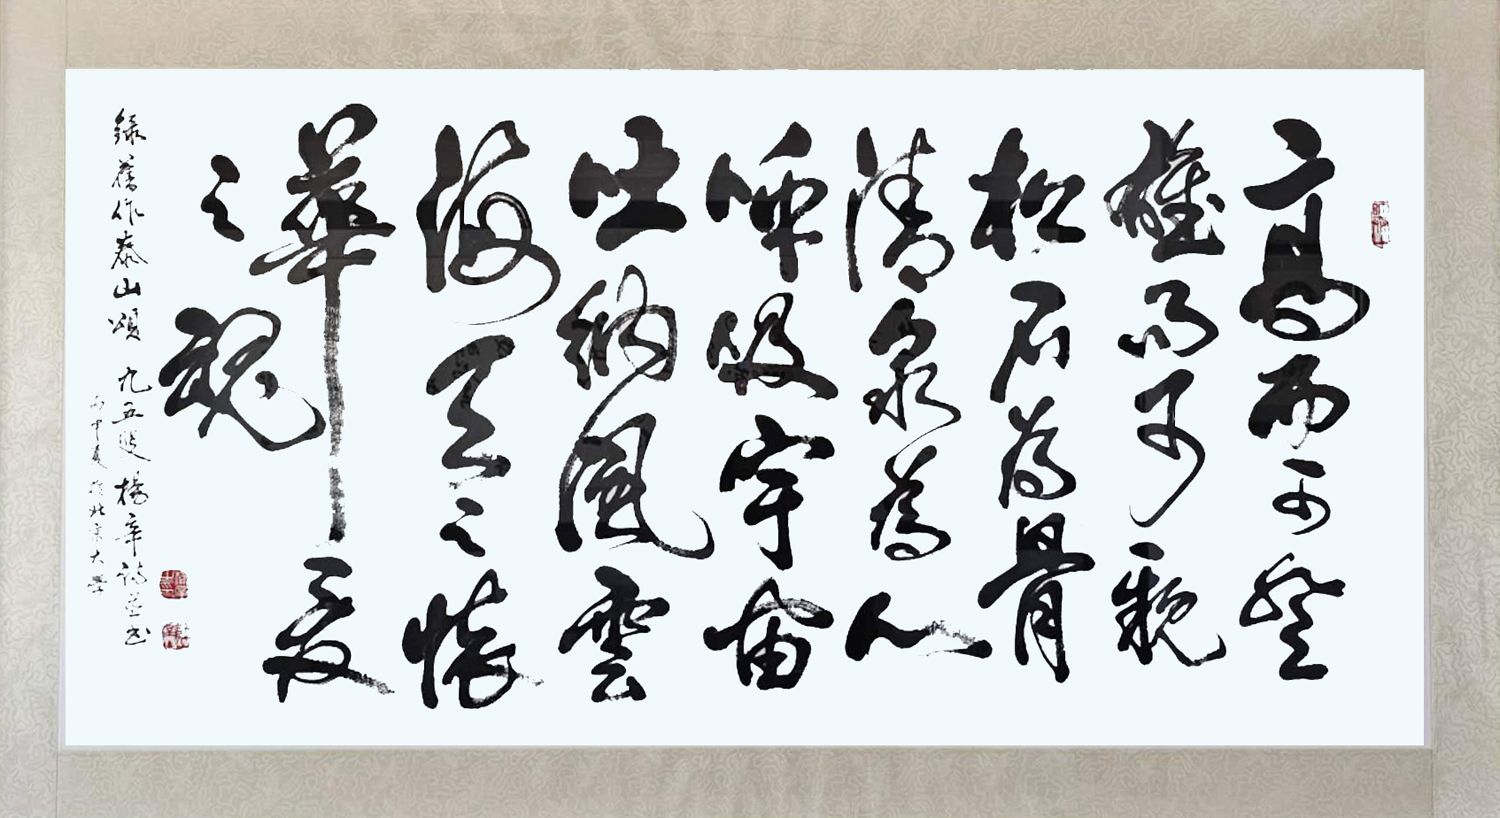 高而可登
雄而可親
松石為骨
清泉為心
呼吸宇宙
吐納風雲
海天之懷
華夏
之魂
錄舊作泰山頌 九五叟 楊辛詩並書
丙申夏於北京大學